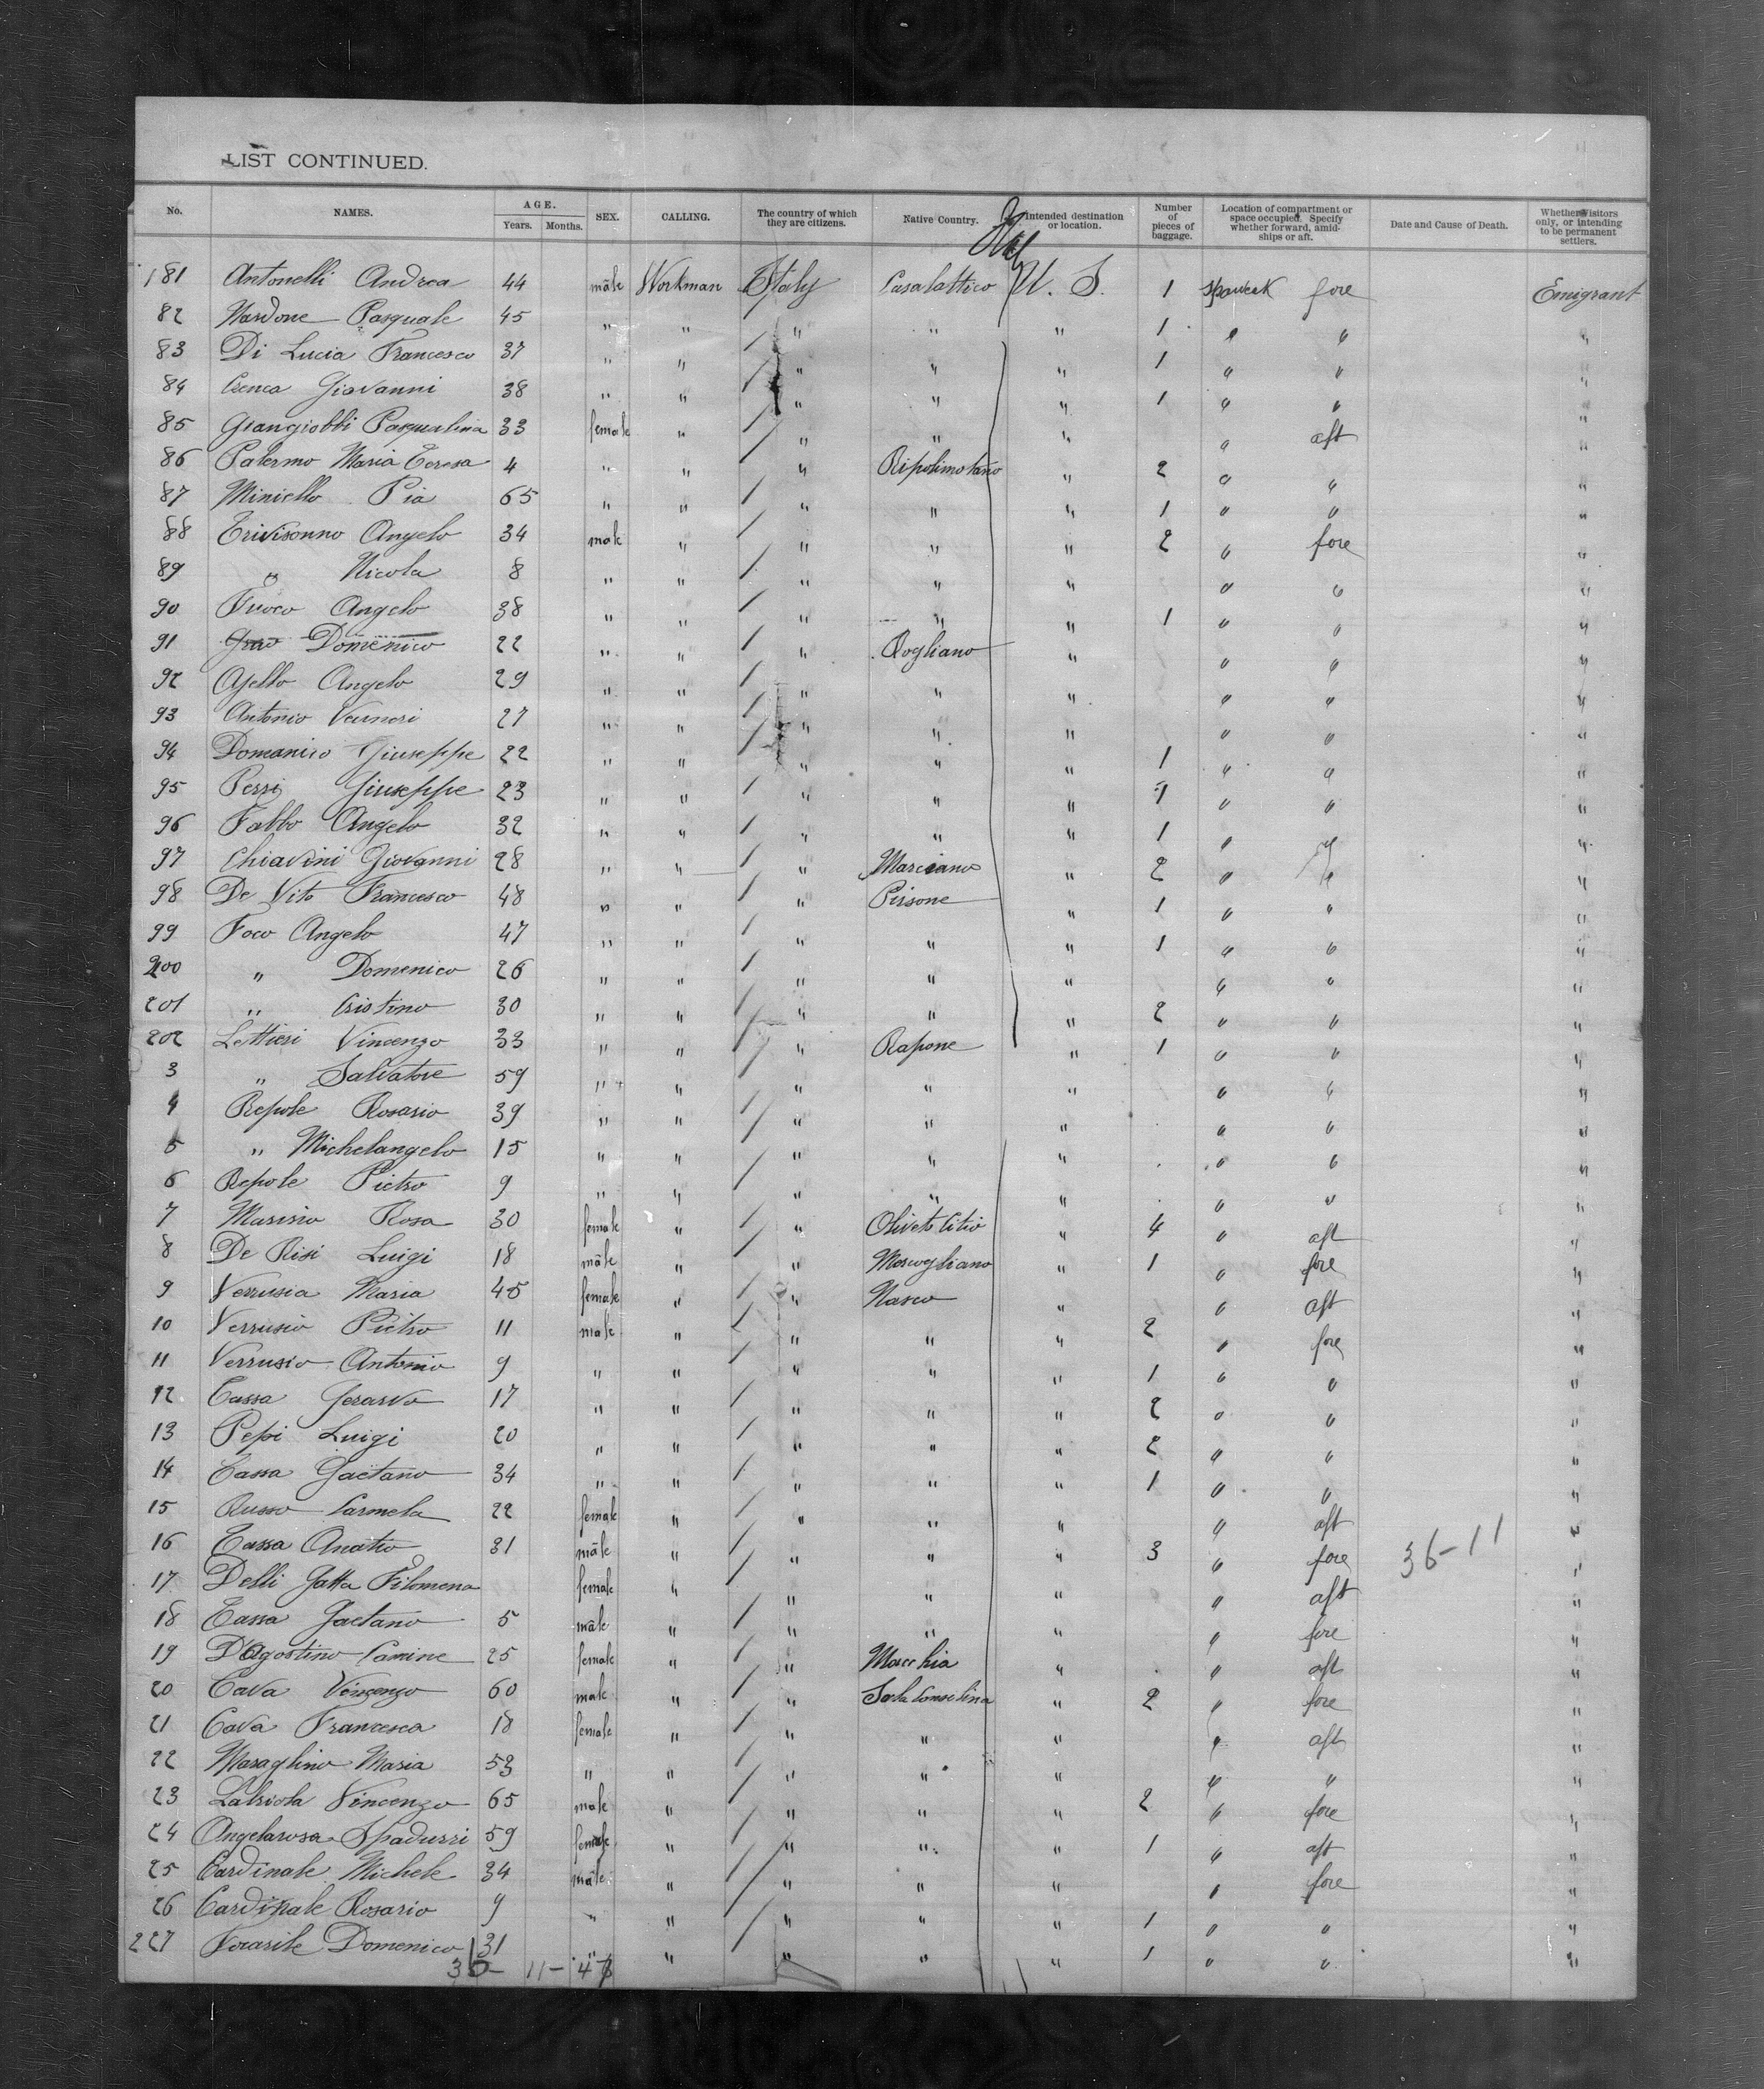 LIST CONTINUED.
No. NAMES. AGE. Years. Months. SEX. CALLING. The country of which they are citizens. Native Country. Intended destination or location. Number of pieces of baggage. Location of compartment or space occupied. Specify whether forward, amidships or aft. Date and Cause of Death. Whether Visitors only, or intending to be permanent settlers.
181 Antonelli Andrea 44 male Workman Italy Casalattico U. S. 1 fore Emigrant
82 Nardone Pasquale 45 " " " " " 1 " " "
83 Di Lucia Francesco 37 " " " " " 1 " " "
84 Cenca Giovanni 38 " " " " " 1 " " "
85 Giangiobbi Pasqualina 33 female " " " " " aft "
86 Palermo Maria Teresa 4 " " " Ripalimotano " 2 " " "
87 Miniello Pia 65 " " " " " 1 " " "
88 Trivisonno Angelo 34 male " " " " 2 " fore "
89 " Nicola 8 " " " " " " " "
90 Fuoco Angelo 38 " " " " " 1 " " "
91 Domenico 22 " " " Rogliano " " " "
92 Ajello Angelo 29 " " " " " " " "
93 Antonio Vairneri 27 " " " " " " " "
94 Domanico Giuseppe 22 " " " " " 1 " " "
95 Perri Giuseppe 23 " " " " " 1 " " "
96 Fabbo Angelo 32 " " " " " 1 " " "
97 Chiavini Giovanni 28 " " " Marciano " 2 " " "
98 De Vito Francesco 48 " " " Pisone " 1 " " "
99 Foco Angelo 47 " " " " " 1 " " "
200 " Domenico 26 " " " " " " " "
201 " Cristino 30 " " " " " 2 " " "
202 Lettieri Vincenzo 33 " " " Rapone " 1 " " "
3 " Salvatore 59 " " " " " " " "
4 Repole Rosario 39 " " " " " " " "
5 " Michelangelo 15 " " " " " " " "
6 Repole Pietro 9 " " " " " " " "
7 Rosa 30 female " " Oliveto Citio " 4 " aft "
8 De Risi Luigi 18 male " " Mercogliano " 1 " fore "
9 Verrusia Maria 45 female " " " " aft "
10 Verrusio Pietro 11 male " " " " 2 " fore "
11 Verrusio Antonio 9 " " " " " 1 " " "
12 Cassa Gerardo 17 " " " " " 2 " " "
13 Pepi Luigi 20 " " " " " 2 " " "
14 Cassa Gaetano 34 " " " " " 1 " " "
15 Russo Carmela 22 female " " " " " aft "
16 Cassa 31 male " " " " 3 " fore 36-11 "
17 Delli Gatta Filomena female " " " " " aft "
18 Cassa Gaetano 5 male " " " " " fore "
19 D'Agostino Carmine 25 female " " Macchia " " aft "
20 Cava Vincenzo 60 male " " Sala Consolina " 2 " fore "
21 Cava Francesca 18 female " " " " " aft "
22 Maraglino Maria 53 " " " " " " " "
23 Labriola Vincenzo 65 male " " " " 2 " fore "
24 Angelarosa Spaduzzi 59 female " " " " 1 " aft "
25 Cardinale Michele 34 male " " " " " fore "
26 Cardinale Rosario 9 " " " " " 1 " " "
227 Domenico 31 " " " " " 1 " " "
36- 11- 47